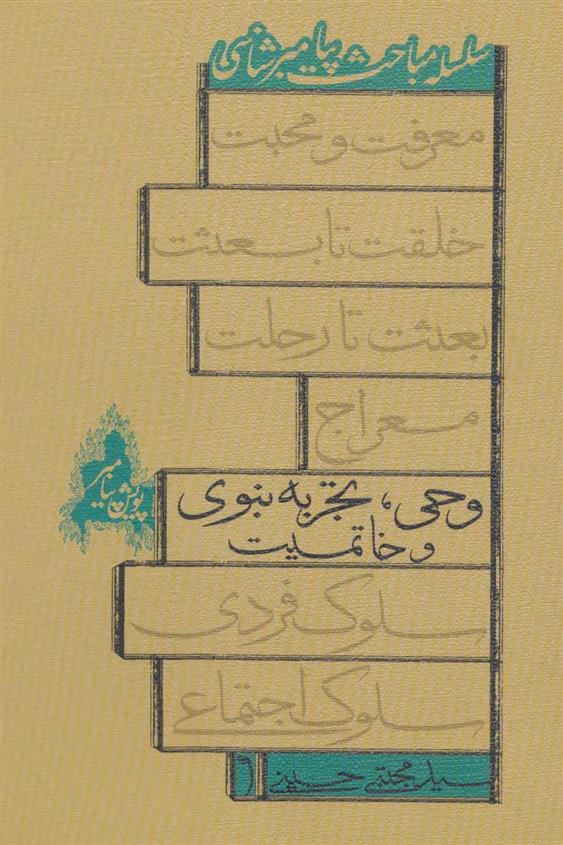 سلسله مباحث پیامبرشناسی
معرفت و محبت
خلقت تا بعثت
بعثت تا رحلت
معراج
وحی، تجربه نبوی
و خاتمیت
پویش پیامبر
سلوک فردی
سلوک اجتماعی
سید مجتبی حسینی
۶